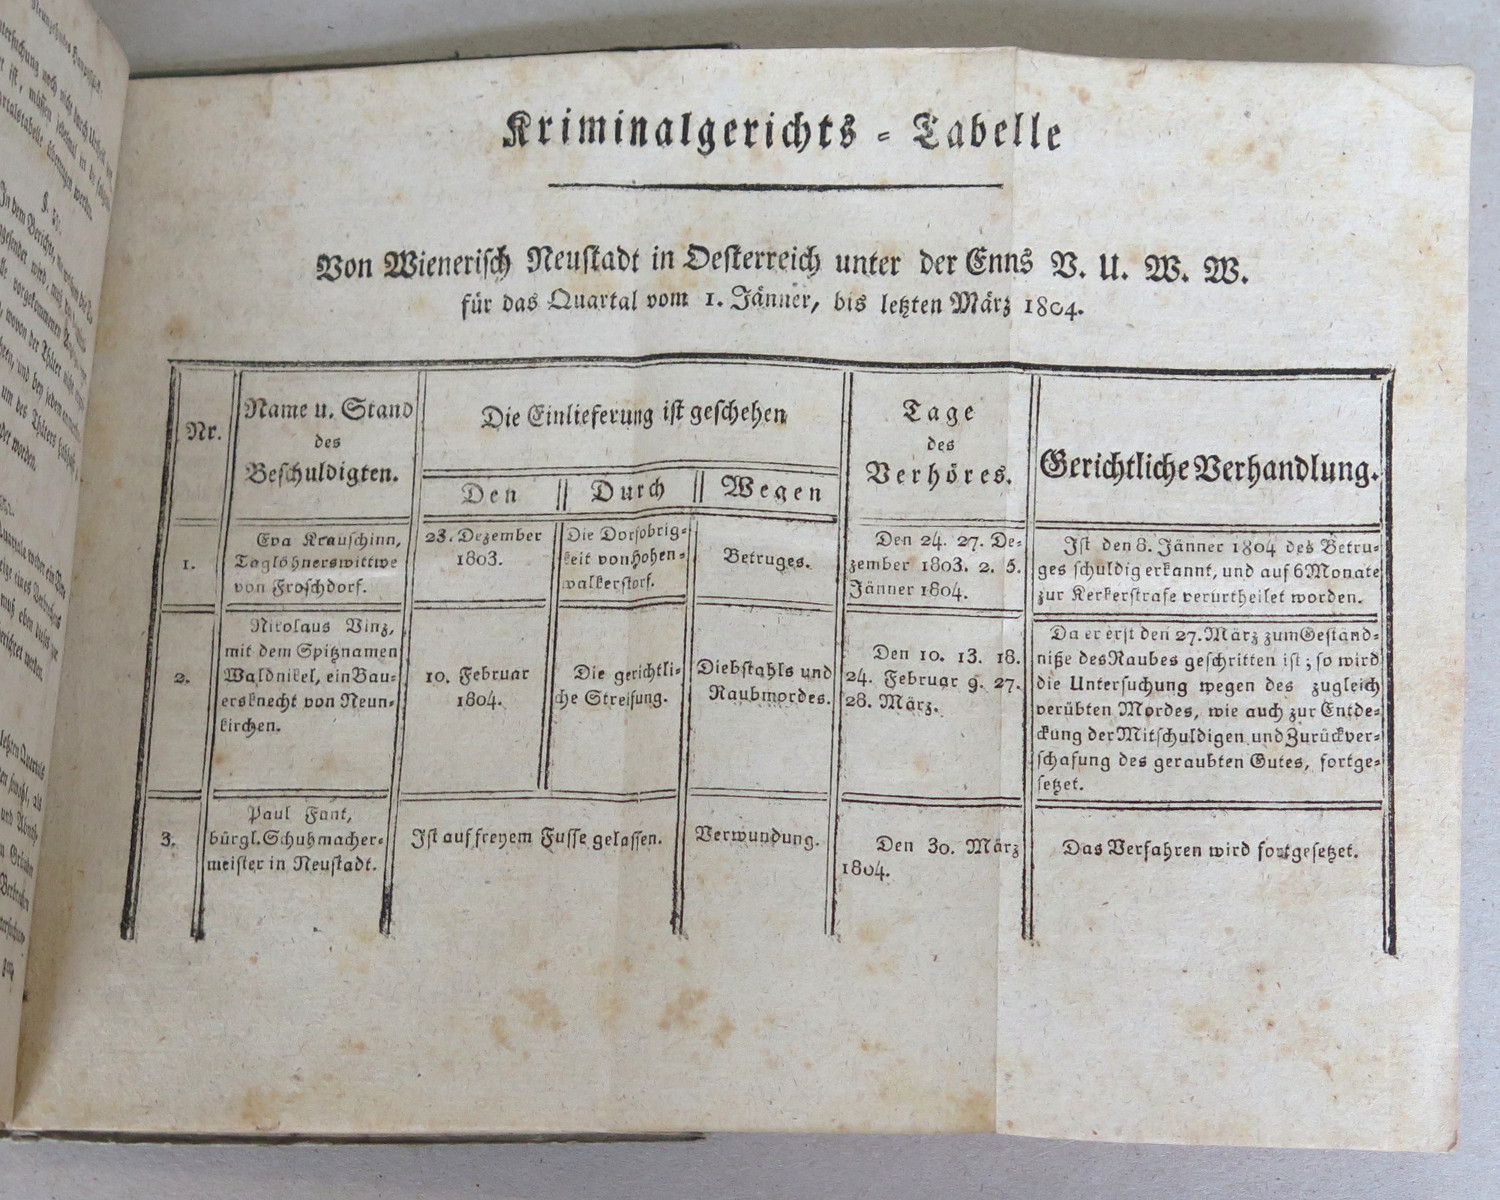 Neunzehntes Hauptstück.
Kriminalgerichts - Tabelle
Von Wienerisch Neustadt in Oesterreich unter der Enns V. U. W. W.
für das Quartal vom 1. Jänner, bis letzten März 1804.
Nr.
Name u. Stand
des
Beschuldigten.
Die Einlieferung ist geschehen
Den
Durch
Wegen
Tage
des
Verhöres.
Gerichtliche Verhandlung.
1.
Eva Krauschinn,
Taglöhnerswittwe
von Froschdorf.
23. Dezember
1803.
Die Dorfobrig-
keit von Hohen-
walkerstorf.
Betruges.
Den 24. 27. De-
zember 1803. 2. 5.
Jänner 1804.
Ist den 8. Jänner 1804 des Betru-
ges schuldig erkannt, und auf 6 Monate
zur Kerkerstrafe verurtheilet worden.
2.
Nicolaus Vinz,
mit dem Spitznamen
Waldnikel, ein Bau-
ersknecht von Neun-
kirchen.
10. Februar
1804.
Die gerichtli-
che Streifung.
Diebstahls und
Raubmordes.
Den 10. 13. 18.
24. Februar 9. 27.
28. März.
Da er erst den 27. März zum Geständ-
niße des Raubes geschritten ist; so wird
die Untersuchung wegen des zugleich
verübten Mordes, wie auch zur Entde-
ckung der Mitschuldigen und Zurückver-
schafung des geraubten Gutes, fortge-
setzet.
3.
Paul Fant,
bürgl. Schuhmacher-
meister in Neustadt.
Ist auf freyem Fusse gelassen.
Verwundung.
Den 30. März
1804.
Das Verfahren wird fortgesetzet.